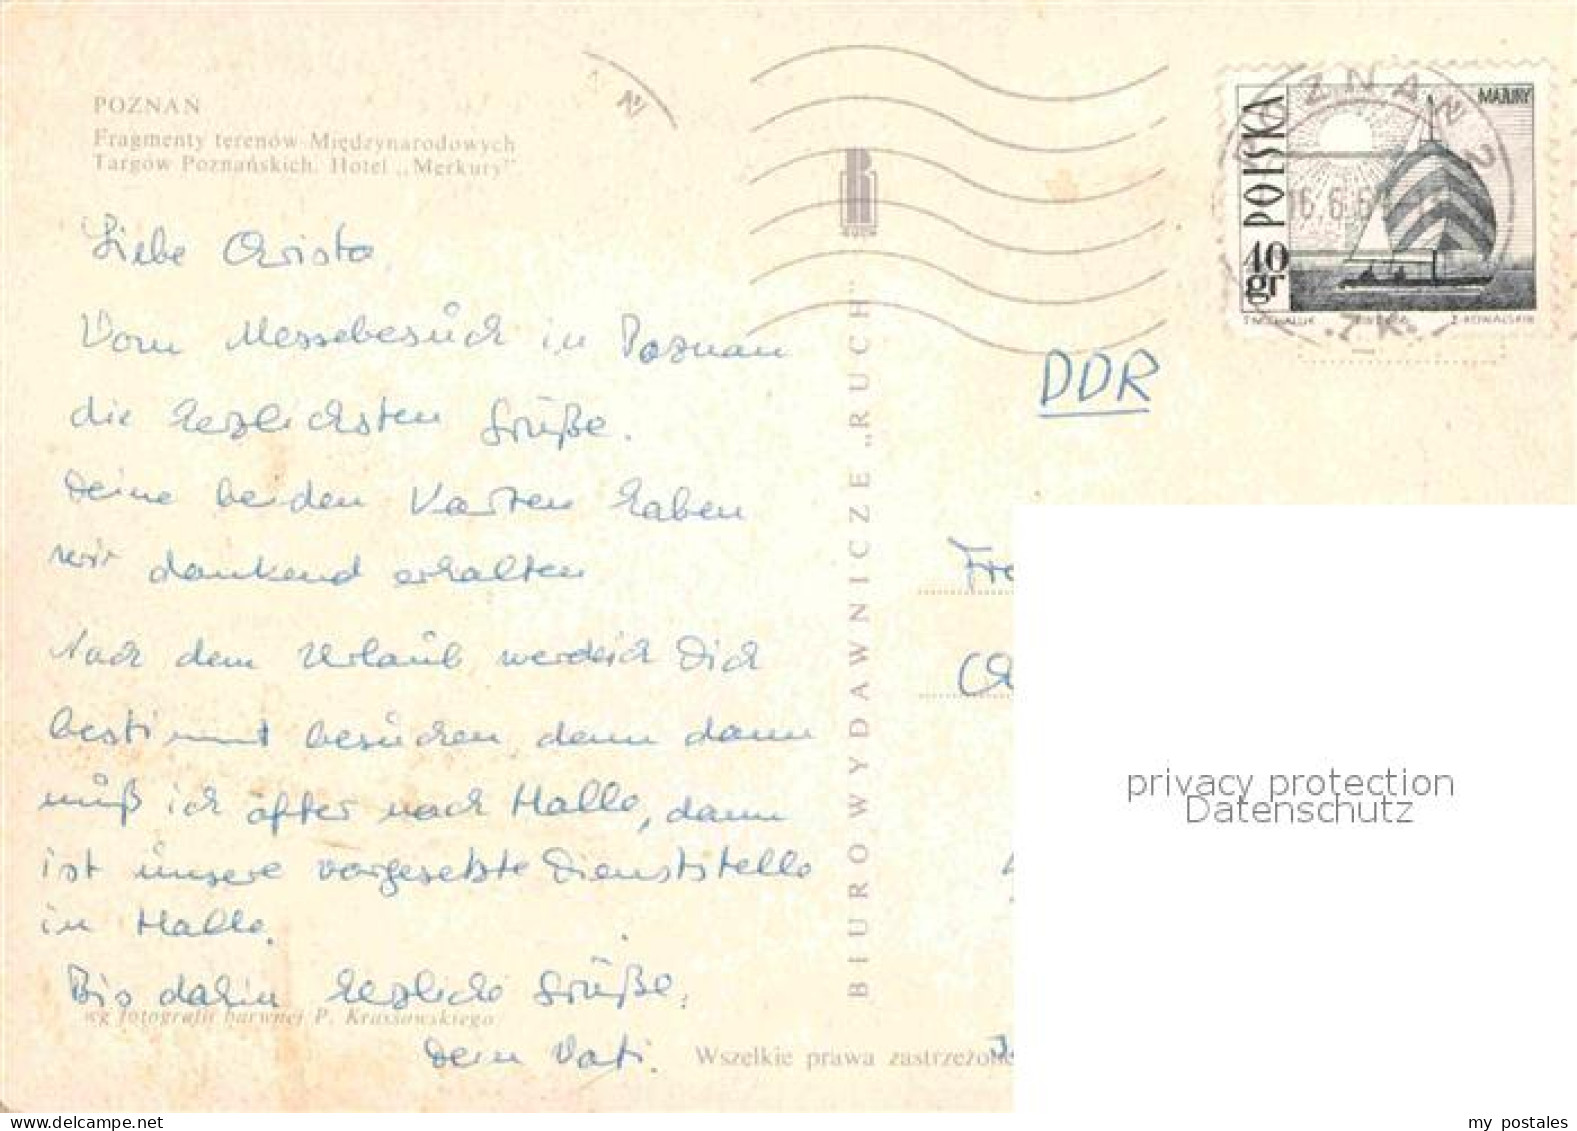 POZNAŃ
Fragmenty terenów Międzynarodowych
Targów Poznańskich. Hotel „Merkury”
Liebe Christa
Vom Messebesuch in Poznan
die herzlichsten Grüße.
Deine beiden Karten haben
wir dankend erhalten
Nach dem Urlaub werde ich Dich
bestimmt besuchen, denn dann
muß ich öfter nach Halle, dann
ist unsere vorgesetzte Dienststelle
in Halle.
Bis dahin herzliche Grüße.
Dein Vati.
wg fotografii barwnej P. Krassowskiego
Wszelkie prawa zastrzeżone
BIURO WYDAWNICZE „RUCH”
POZNAŃ 2
16.6.6
POLSKA
40
gr
MAZURY
Z. KOWALSKI
DDR
privacy protection
Datenschutz
my postales